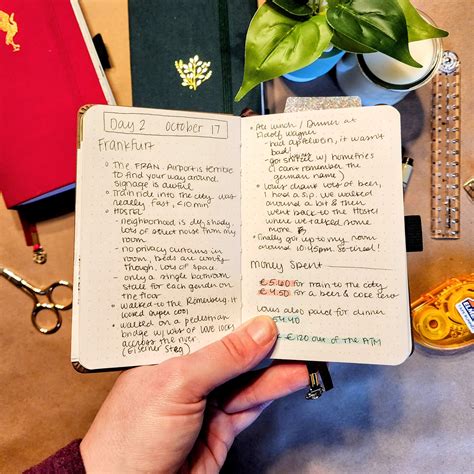 Day 2 October 17
Frankfurt
The FRAN. Airport is terrible
to find your way around.
Signage is awful
Train ride into the city was
really fast, <10 min
Hostel
- neighborhood is dirty, shady,
lots of street noise from my
room
- no privacy curtains in
room, beds are comfy
though, lots of space
- only a single bathroom
stall for each gender on
the floor
walked to the Römerberg, it
looked super cool
walked on a pedestrian
bridge w/ lots of love locks
across the river.
(Eiserner Steg)
Ate lunch / Dinner at
Adolf Wagner
- had apfelwein, it wasn't
bad!
- got schnitzel w/ homefries
(I can't remember the
german name)
Louis drank lots of beer,
I had a sip. We walked
around a bit & then
went back to the Hostel
where we talked some
more.
finally got up to my room
around 10:45pm. So tired!
Money Spent
€5.60 for train to the city
€4.50 for a beer & coke zero
Louis also paid for dinner
54.40
€120 out of the ATM